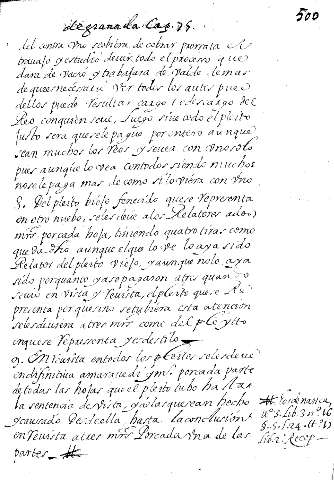 500
de granada Cap. 75.
del contra uno se obiera de cobrar prorrata el
trauajo y estudio de uer todo el proceso que
dara de uacio y trabajara de valde demas
de que es necesario ver todos los autos pues
dellos puede resultar cargo o descargo del
Reo con quien se ve, luego siue todo el pleito
justo sera que se le pague por entero aunque
sean muchos los Reos y se uea con uno solo
pues aunque lo vea con todos siendo muchos
no se le paga mas de como si lo viera con uno
8. Del pleito biejo fenecido que se representa
en otro nuebo, se les deue a los Relatores a dos
mrs por cada hoja, tiniendo quatro tiras como
queda dho aunque el que lo ve lo aya sido
Relator del pleito viejo, y aunque no lo aya
sido porque no ya se pagaron a tres quando
se uio en vista y Reuista, el pleito que se Re
presenta por que si no se tubiera esta atencion
se les deuieran a tres mrs como del pleyto
en que se representa y es de stilo
9. En Reuista en todos los pleitos se les deue
en difinitiua a maraue di y mo. por cada parte
de todas las hojas que el pleito tubo hasta
la sentencia de vista, y de las que se an hecho
y causado desde ella hasta la conclusion
en Reuista a tres mrs Por cada una de las
partes
Ordenanza
Lib. 3 nº 16
Recop.